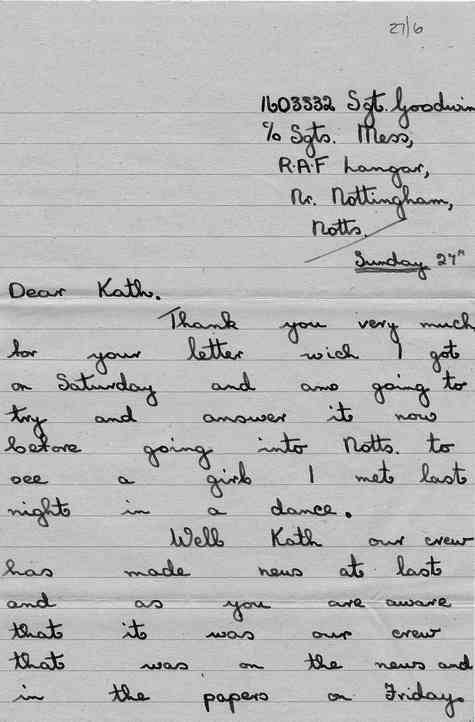 27/6
1603332 Sgt. Goodwin
c/o Sgts. Mess,
R.A.F Langar,
Nr. Nottingham,
Notts.
Sunday 27th
Dear Kath.
Thank you very much
for your letter wich I got
on Saturday and amo going to
try and answer it now
before going into Notts. to
see a girl I met last
night in a dance.
Well Kath our crew
has made news at last
and as you are aware
that it was our crew
that was on the news and
in the papers on Friday.